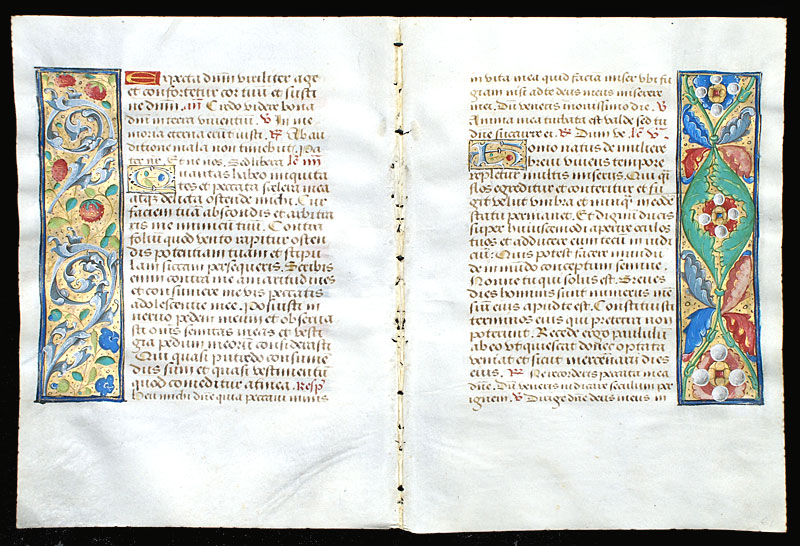 Expecta dnm viriliter age
et confortetur cor tuu et susti
ne dnm. an Credo videre bona
dni in terra viventium. V In me
moria eterna erunt iusti. R Ab au
ditione mala non timebut. Pa
ter nr. Et ne nos. Sed libera. le iiii
Quantas habeo iniquita
tes et peccata scelera mea
atq delicta ostende michi. Cur
faciem tua abscondis et arbitra
ris me inimicu tuu. Contra
folium quod vento rapitur osten
dis potentiam tuam et stipu
lam siccam persequeris. Scribis
enim contra me amaritudines
et consumere me vis peccatis
adolescentie mee. Posuisti in
nervo pedem meum et observa
sti omnes semitas meas et vesti
gia pedum meorum considerasti
Qui quasi putredo consume
dus sum et quasi vestimentu
quod comeditur a tinea. Resp
Heu michi dne quia peccavi nimis
in vita mea quid facia miser ubi fu
giam nisi ad te deus meus miserere
mei. Dum veneris in novissimo die. V
Anima mea turbata est valde sed tu
dne sucurre ei. R Dum ve. le v
Homo natus de muliere
brevi vivens tempore
repletur multis miseriis. Qui q
si flos egreditur et conteritur et fu
git velut umbra et nunq in eode
statu permanet. Et dignu ducis
super huiuscemodi aperire oculos
tuos et adducere eum tecu in iudi
cium: Quis potest facere mundu
de inmudo conceptum semine.
Nonne tu qui solus es. Breves
dies hominis sunt numerus men
sium eius apud te est. Constituisti
terminos eius qui preteriri non
poterunt. Recede ergo paululu
ab eo ut quiescat donec optata
veniat et sicut mercenarii dies
eius. R Ne recorderis peccata mea
dne. Dum veneris iudicare seculum per
ignem. V Dirige dne deus meus in